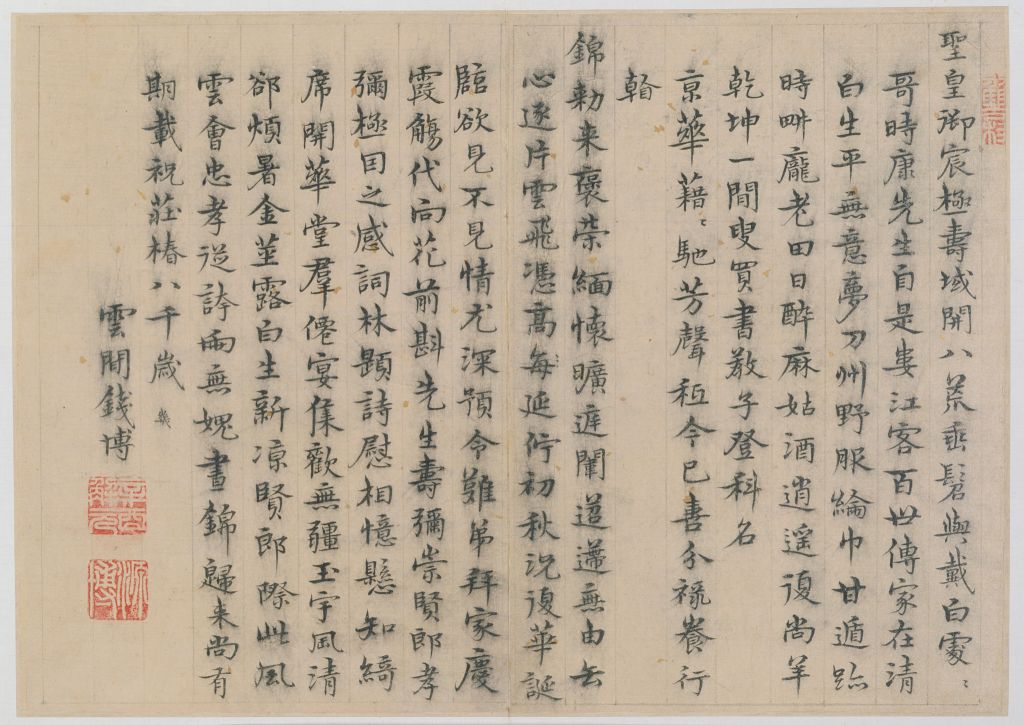 聖皇御宸極壽域開八荒垂髫與戴白處〻
哥時康先生自是婁江客百世傳家在清
白生平無意夢刀州野服綸巾甘遁跡
時時龐老田日醉麻姑酒逍遙復尚羊
乾坤一閒叟買書教子登科名
京華藉〻馳芳聲秪今已喜分祿養行
錦勑来褒榮緬懷曠遲闈迢遞無由去
心逐片雲飛憑高每延佇初秋況復華誕
臨欲見不見情尤深預令難弟拜家慶
霞觴代向花前斟先生壽彌崇賢郎孝
彌極因之感詞林題詩慰相憶懸知綺
席開華堂羣僊宴集歡無疆玉宇風清
卻煩暑金莖露白生新凉賢郎際此風
雲會忠孝從誇兩無媿晝錦歸来尚有
期載祝莊椿八千歲
雲間錢博